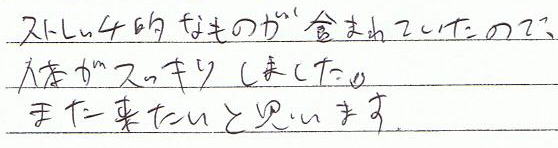 ストレッチ的なものが含まれていたので、
体がスッキリしました。
また来たいと思います。